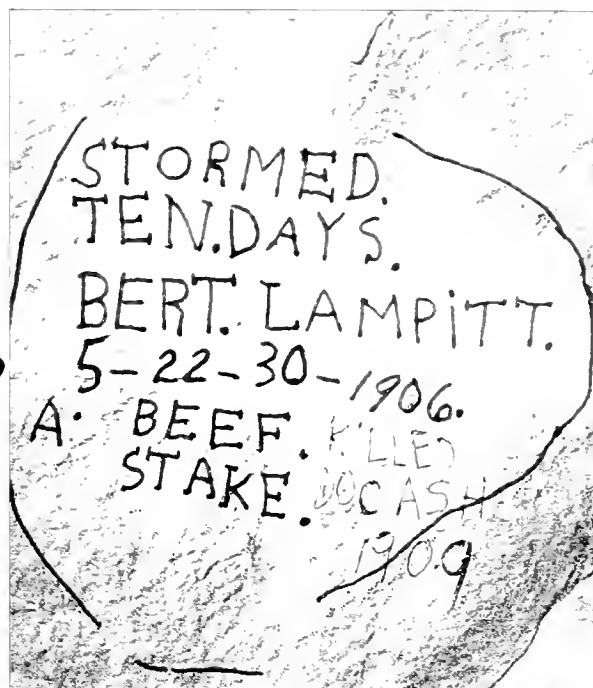 STORMED.
TEN.DAYS.
BERT. LAMPiTT.
5-22-30-1906.
A. BEEF.
STAKE.
KILLED
CASH
1909